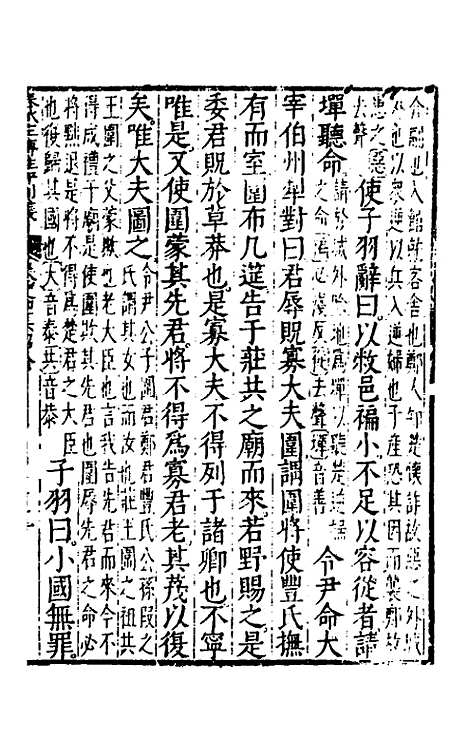 舍融也入館就客舍也鄭人知楚懷詐故惡之外城
外也以眾逆以兵入逆婦也子產恐其因而襲鄭故
患之惡去聲使子羽辭曰以敝邑褊小不足以容從者請
墠聽命請於城外除地爲墠以聽楚逆婦之命從去聲墠音善令尹命大
宰伯州犁對曰君辱貺寡大夫圍謂圍將使豐氏撫
有而室圍布几筵告于莊共之廟而來若野賜之是
委君貺於草莽也是寡大夫不得列于諸卿也不寧
唯是又使圍蒙其先君將不得爲寡君老其茂以復
矣唯大夫圖之令尹公子圍君鄭君豐氏公孫段之氏謂其女也而汝也莊王圍之祖共
王圍之父蒙欺也老大臣也言我告先君而來今不
得成禮于廟是使圍欺其先君也圍辱先君之命必
將黜退是將不得爲楚君之大臣
也復歸其國也大音泰共音恭子羽曰小國無罪
春秋左傳註評測義